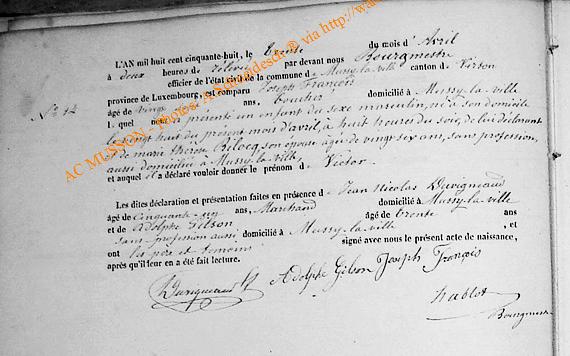 L'AN mil huit cent cinquante-huit, le trente du mois d'Avril
à deux heures de relevée par devant nous Bourgmestre
officier de l'état civil de la commune de Mussy-la-ville canton de Virton
province de Luxembourg, est comparu Joseph François
N° 12
âgé de vingt ans, boucher domicilié à Mussy-la-ville
lequel nous a présenté un enfant du sexe masculin, né à son domicile
le vingt huit du présent mois d'avril, à huit heures du soir, de lui déclarant
et de marie thérèse Belocq, son épouse âgée de vingt six ans, sans profession,
aussi domiciliée à Mussy-la-ville,
et auquel il a déclaré vouloir donner le prénom de Victor.
Les dites déclaration et présentation faites en présence de Jean Nicolas Duvigneaud
âgé de Cinquante-six ans, Marchand domicilié à Mussy-la-ville
et de Adolphe Gilson âgé de trente ans
sans profession aussi domicilié à Mussy-la-ville, et
ont les père et témoins signé avec nous le présent acte de naissance,
après qu'il leur en a été fait lecture.
Duvigneaud Adolphe Gilson Joseph François
hablot
Bourgmestre
AC MUSSON - Photos: A. Schaudesch ® via http://wa